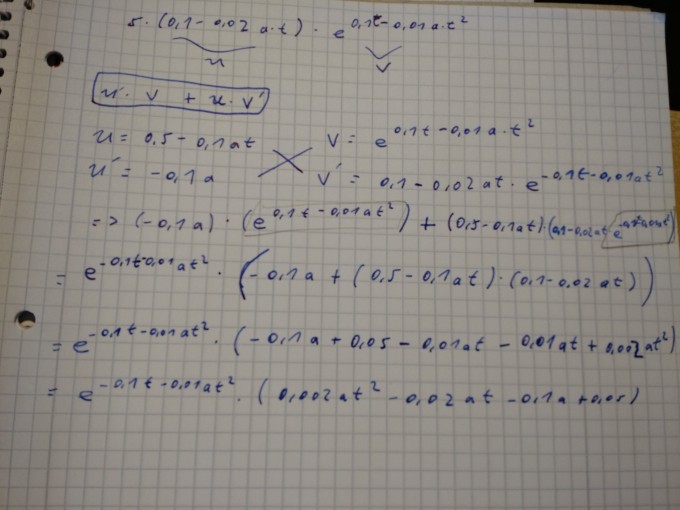 5 · (0,1 - 0,02 a·t) · e^(0,1t - 0,01a·t²)
u v
u' · v + u · v'
u = 0,5 - 0,1at v = e^(0,1t - 0,01a·t²)
u' = -0,1a v' = 0,1 - 0,02at · e^(-0,1t - 0,01at²)
=> (-0,1a) · (e^(0,1t - 0,01at²)) + (0,5 - 0,1at) · (0,1 - 0,02at
= e^(-0,1t-0,01at²) · (-0,1a + (0,5 - 0,1at) · (0,1 - 0,02at))
= e^(-0,1t - 0,01at²) · (-0,1a + 0,05 - 0,01at - 0,01at + 0,002at²)
= e^(-0,1t - 0,01at²) · (0,002at² - 0,02at - 0,1a + 0,05)